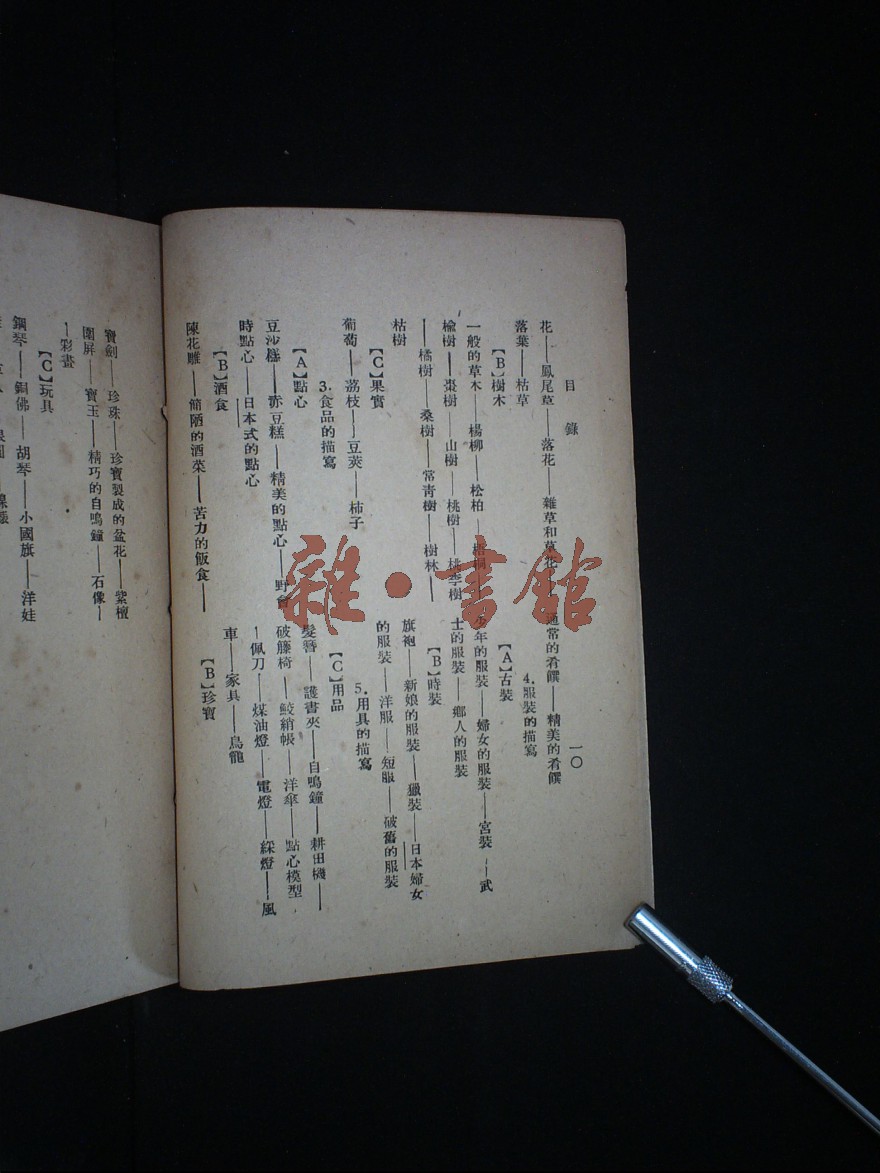 目錄
一〇
花——鳳尾草——落花——雜草和草花——
落葉——枯草
【B】樹木
一般的草木——楊柳——松柏——梧桐——
榆樹——棗樹——山樹——桃樹——桃李樹
——橘樹——桑樹——常青樹——樹林——
枯樹
【C】果實
葡萄——荔枝——豆莢——柿子
3.食品的描寫
【A】點心
豆沙糕——赤豆糕——精美的點心——野會
時點心——日本式的點心
【B】酒食
陳花雕——簡陋的酒菜——苦力的飯食——
通常的肴饌——精美的肴饌
4.服裝的描寫
【A】古裝
少年的服裝——婦女的服裝——宮裝——武
士的服裝——鄉人的服裝
【B】時裝
旗袍——新娘的服裝——獵裝——日本婦女
的服裝——洋服——短服——破舊的服裝
5.用具的描寫
【C】用品
髮簪——護書夾——自鳴鐘——耕田機——
破籐椅——鮫綃帳——洋傘——點心模型
—佩刀——煤油燈——電燈——綵燈——風
車——家具——烏龍
【B】珍寶
寶劍——珍珠——珍寶製成的盆花——紫檀
圍屏——寶玉——精巧的自鳴鐘——石像—
—彩畫
【C】玩具
鋼琴——銅佛——胡琴——小國旗——洋娃
雜·書館